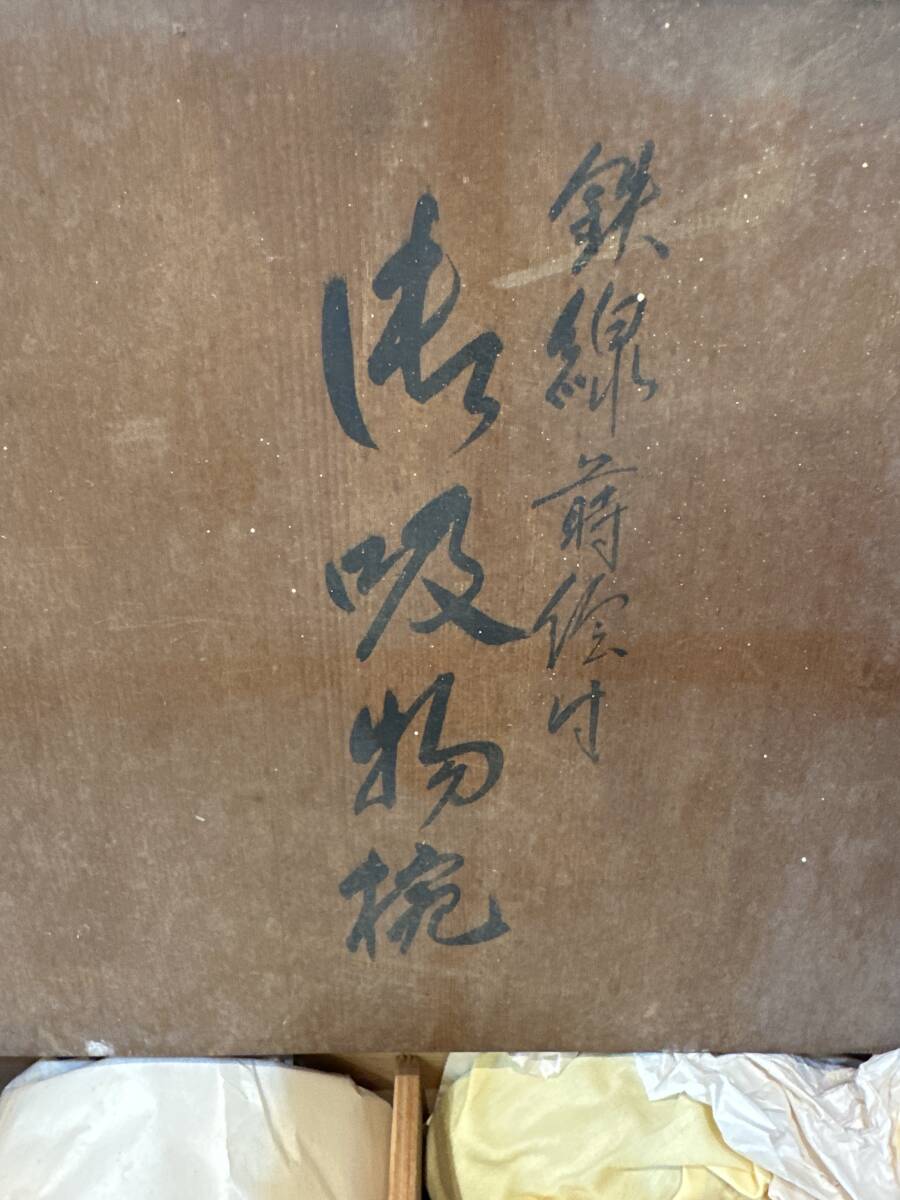 鉄線蒔絵付
御吸物椀